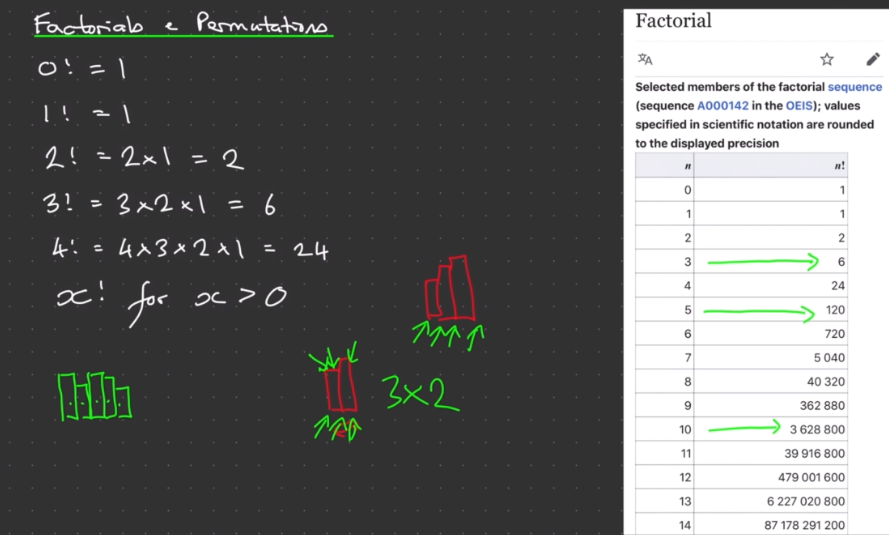 Factorials & Permutations
0! = 1
1! = 1
2! = 2×1 = 2
3! = 3×2×1 = 6
4! = 4×3×2×1 = 24
x! for x > 0
3×2
Factorial
Selected members of the factorial sequence
(sequence A000142 in the OEIS); values
specified in scientific notation are rounded
to the displayed precision
n n!
0 1
1 1
2 2
3 6
4 24
5 120
6 720
7 5 040
8 40 320
9 362 880
10 3 628 800
11 39 916 800
12 479 001 600
13 6 227 020 800
14 87 178 291 200